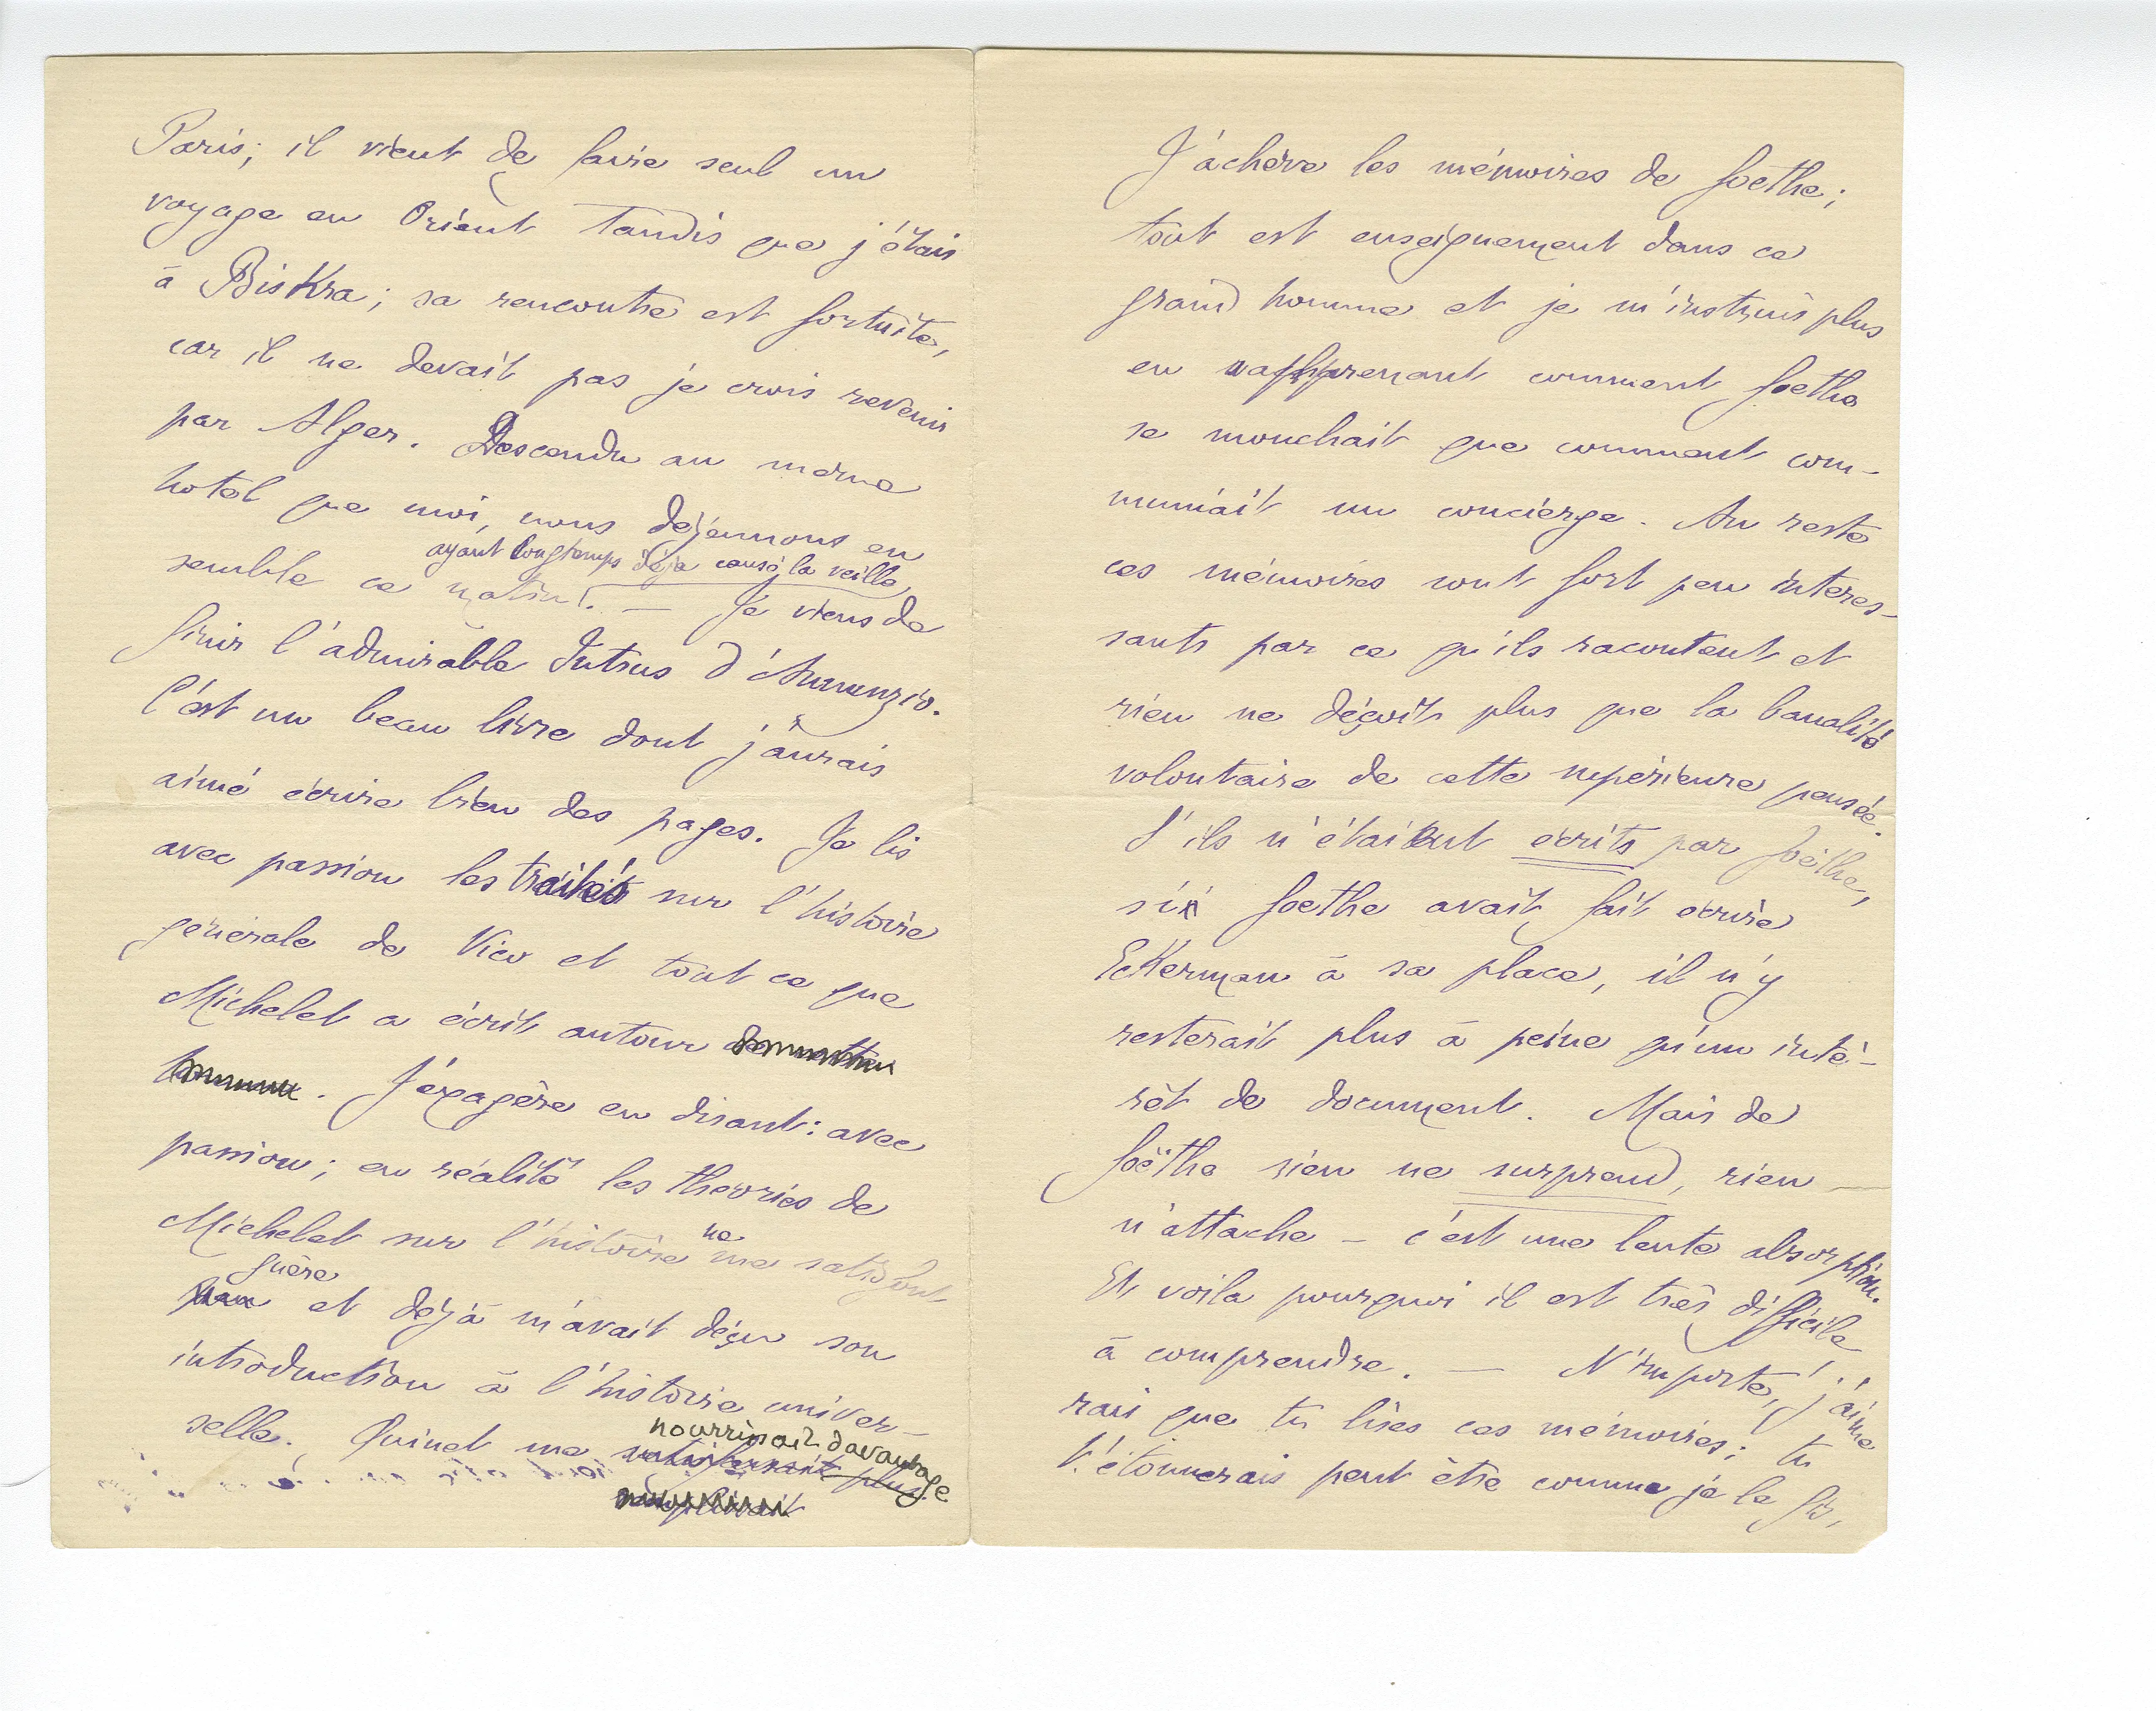 Paris; il vient de faire seul un
voyage en Orient tandis que j'étais
à Biskra; sa rencontre est fortuite,
car il ne devait pas je crois revenir
par Alger. Descendu au même
hotel que moi, nous déjeunons en
ayant longtemps déja causé la veille,
semble ce matin. — Je viens de
finir l'admirable Intrus d'Annunzio.
C'est un beau livre dont j'aurais
aimé écrire bien des pages. Je lis
avec passion les traités sur l'histoire
générale de Vico et tout ce que
Michelet a écrit autour
. J'éxagère en disant: avec
passion; en réalité les théories de
ne
Michelet sur l'histoire me satisfont
guère
et déjà m'avait déçu son
introduction à l'histoire univer-
nourrissait davantage
selle. Quinet me satisfaisait plus
J'achève les mémoires de Goethe;
tout est enseignement dans ce
grand homme et je m'instruis plus
en apprenant comment Goethe
se mouchait que comment com-
muniait un concierge. Au reste
ces mémoires sont fort peu interes-
sants par ce qu'ils racontent et
rien ne déçoit plus que la banalité
volontaire de cette supérieure pensée.
S'ils n'étaient écrits par Goëthe,
si Goethe avait fait écrire
Eckerman à sa place, il n'y
resterait plus à peine qu'un inté-
rêt de document. Mais de
Goëthe rien ne surprend, rien
n'attache – c'est une lente absorption.
Et voila pourquoi il est très difficile
à comprendre. — N'importe, j'aime
rais que tu lises ces mémoires; tu
t'étonnerais peut être comme je le fis,